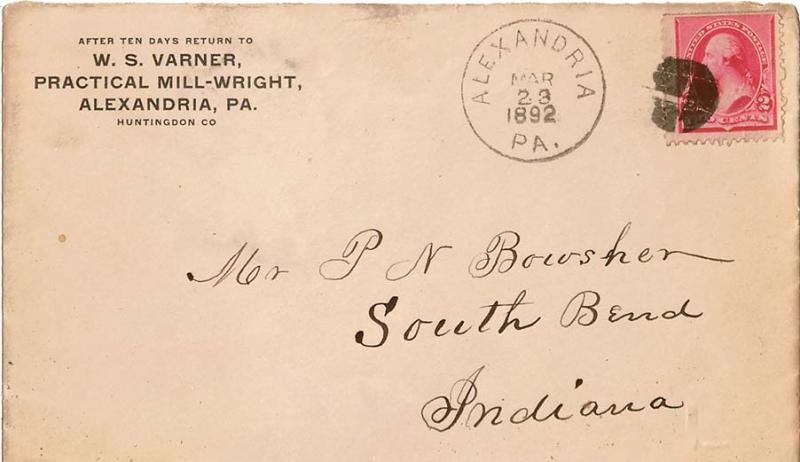 AFTER TEN DAYS RETURN TO
W. S. VARNER,
PRACTICAL MILL-WRIGHT,
ALEXANDRIA, PA.
HUNTINGDON CO
ALEXANDRIA
MAR
23
1892
PA.
UNITED STATES POSTAGE
2
CENTS
Mr P N Bowsher
South Bend
Indiana